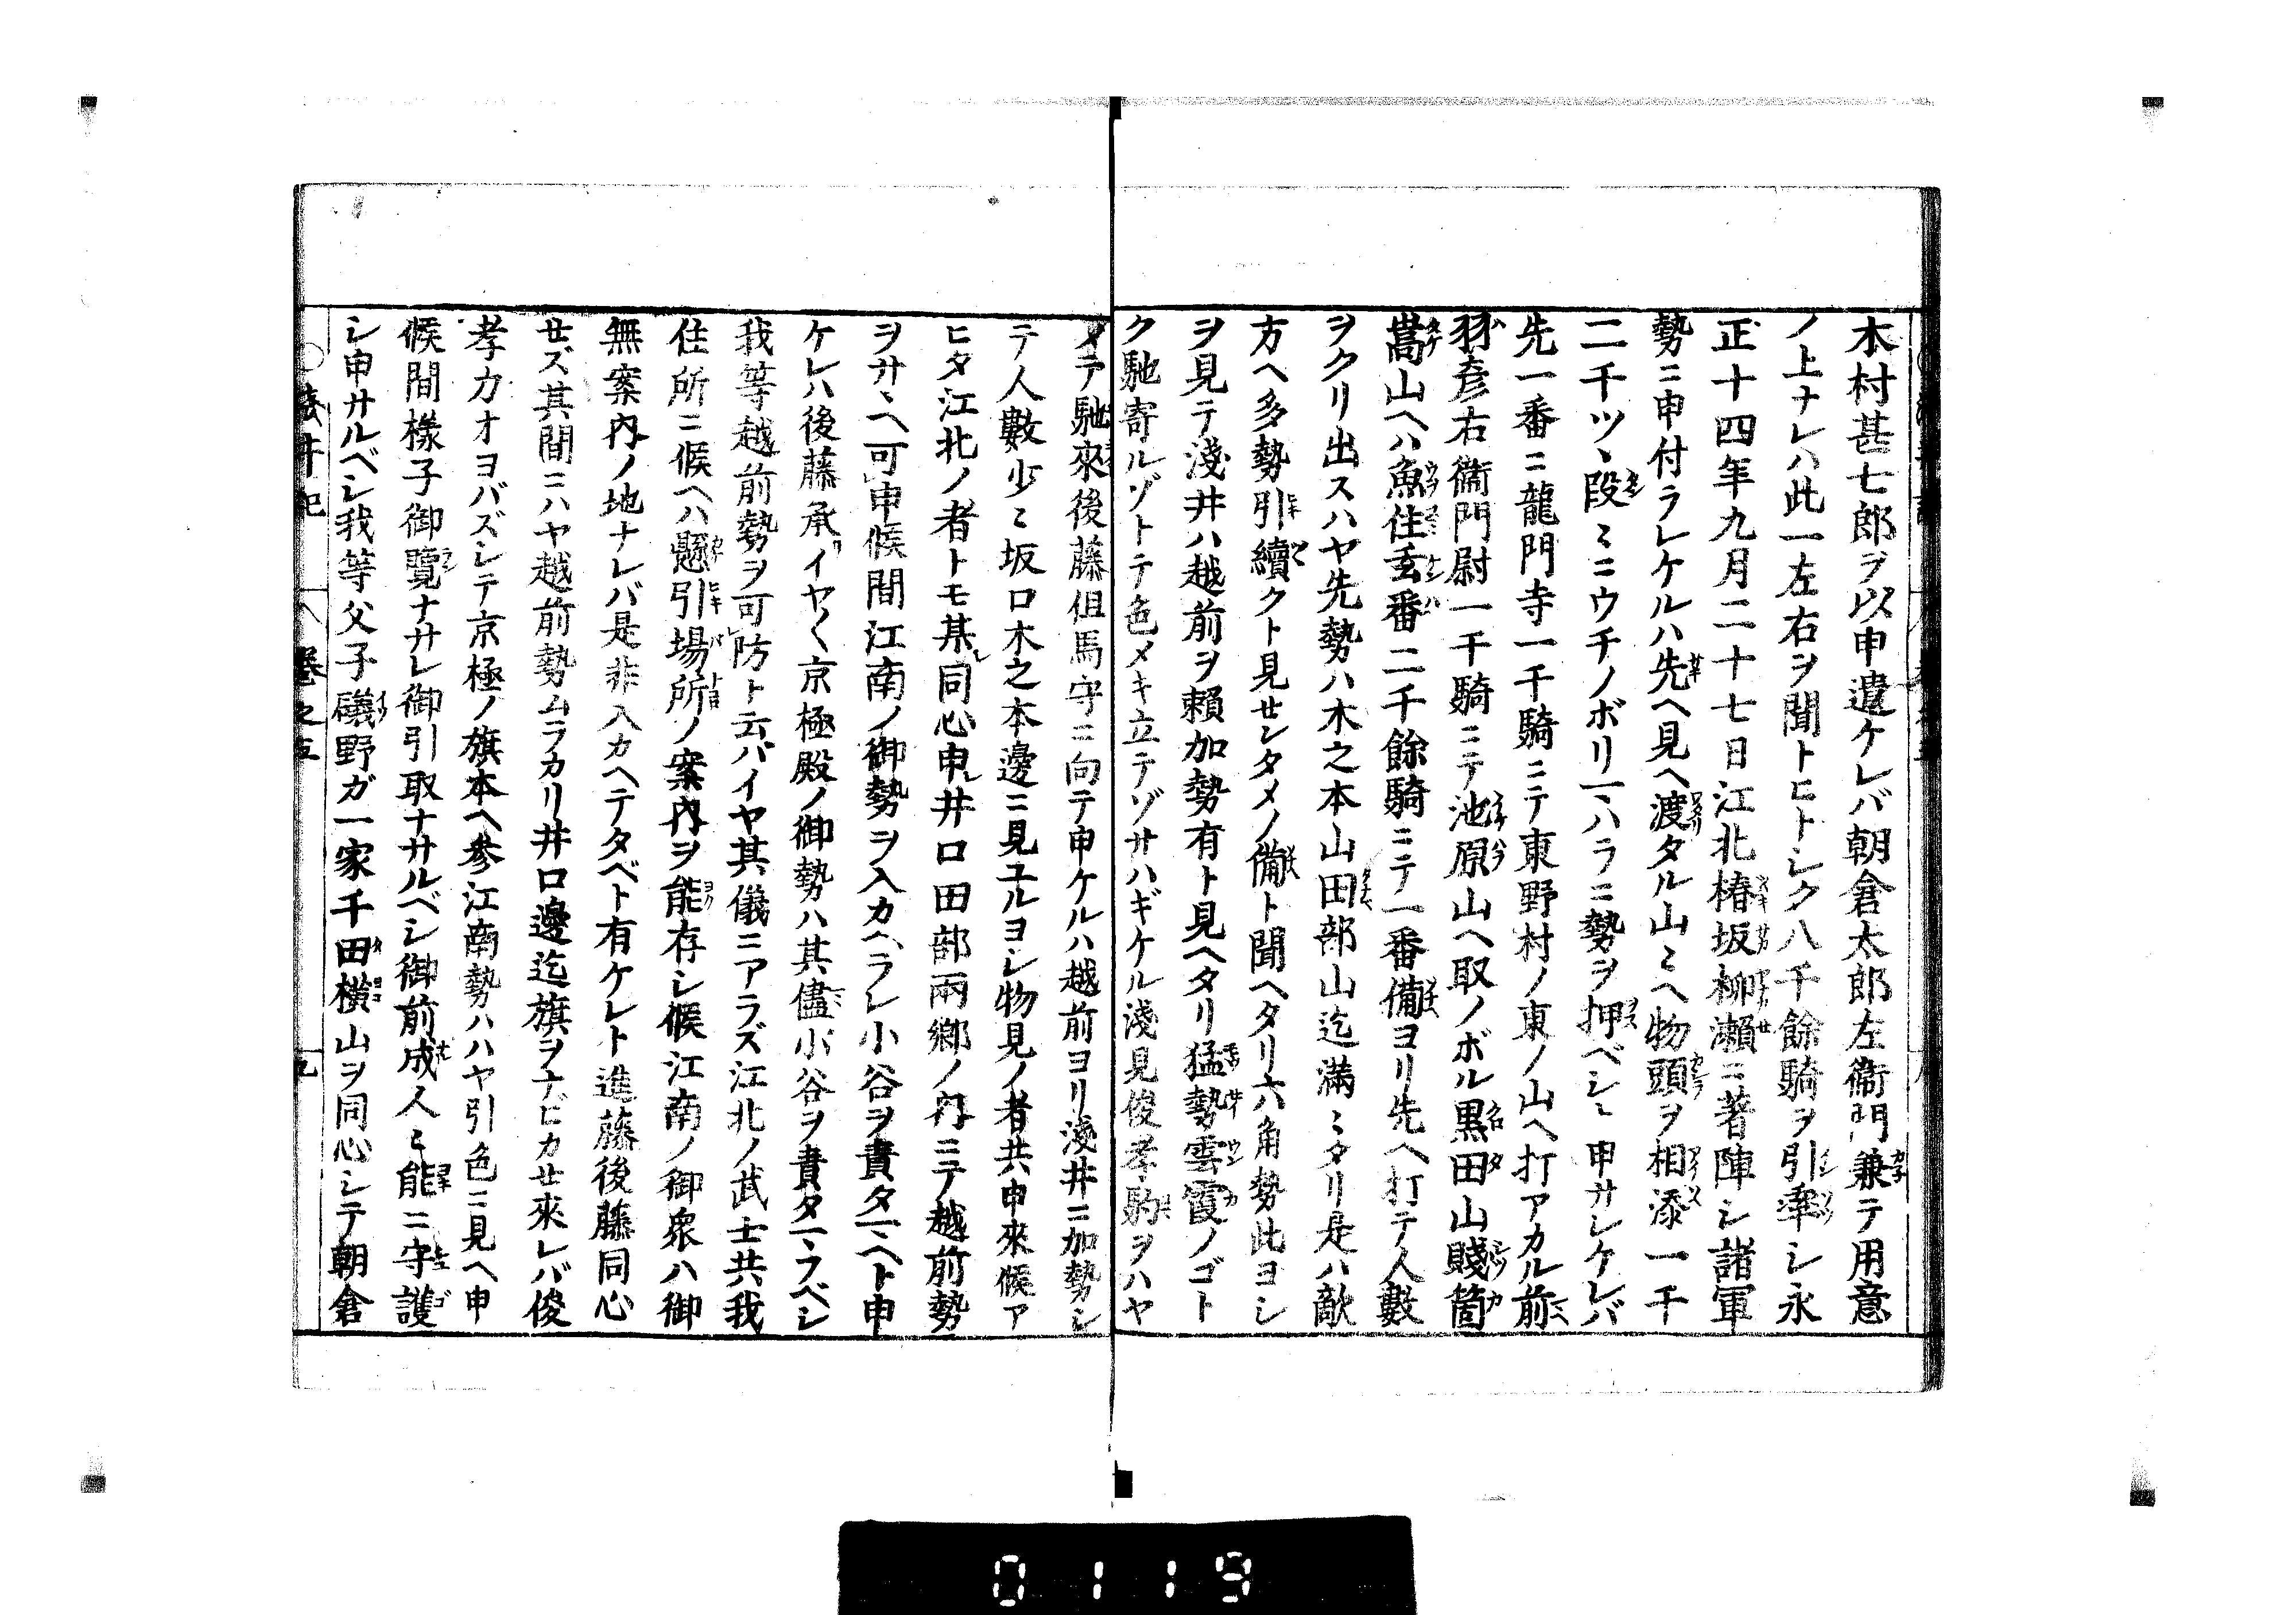 木村甚七郎ヲ以申遣ケレバ朝倉太郎左衞門兼テ用意
ノ上ナレハ此一左右ヲ聞トヒトシク八千餘騎ヲ引率シ永
正十四年九月二十七日江北椿坂柳瀬ニ著陣シ諸軍
勢ニ申付ラレケルハ先ヘ見ヘ渡タル山〻ヘ物頭ヲ相添一千
二千ツヽ段〻ニウチノボリ一ハラニ勢ヲ押ベシト申サレケレバ
先一番ニ龍門寺一千騎ニテ東野村ノ東ノ山ヘ打アカル前
羽彦右衞門尉一千騎ニテ池原山ヘ取ノボル黒田山賤箇
嵩山ヘハ魚住玄番二千餘騎ニテ一番備ヨリ先ヘ打テ人數
ヲクリ出スハヤ先勢ハ木之本山田部山迄滿〻タリ是ハ敵
方ヘ多勢引續クト見セシタメノ備ト聞ヘタリ六角勢此ヨシ
ヲ見テ淺井ハ越前ヲ賴加勢有ト見ヘタリ猛勢雲霞ノゴト
ク馳寄ルゾトテ色メキ立テゾサハギケル淺見俊孝駒ヲハヤ
メテ馳來後藤但馬守ニ向テ申ケルハ越前ヨリ淺井ニ加勢シ
テ人數少〻坂口木之本邊ニ見ユルヨシ物見ノ者共申來候ア
ヒタ江北ノ者トモ某同心申井口田部兩鄕ノ內ニテ越前勢
ヲサヽヘ可申候間江南ノ御勢ヲ入カヘラレ小谷ヲ責タマヘト申
ケレハ後藤承イヤ〱京極殿ノ御勢ハ其儘小谷ヲ責タマフベシ
我等越前勢ヲ可防ト云バイヤ其儀ニアラズ江北ノ武士共我
住所ニ候ヘハ懸引場所ノ案內ヲ能存シ候江南ノ御衆ハ御
無案內ノ地ナレバ是非入カヘテタベト有ケレト進藤後藤同心
セズ其間ニハヤ越前勢ムラカリ井口邊迄旗ヲナビカセ來レバ俊
孝力オヨバズシテ京極ノ旗本ヘ參江南勢ハハヤ引色ニ見ヘ申
候間樣子御覽ナサレ御引取ナサルベシ御前成人〻能ニ守護
シ申サルベシ我等父子礒野ガ一家千田橫山ヲ同心シテ朝倉
○淺井記 卷之五 九
0119